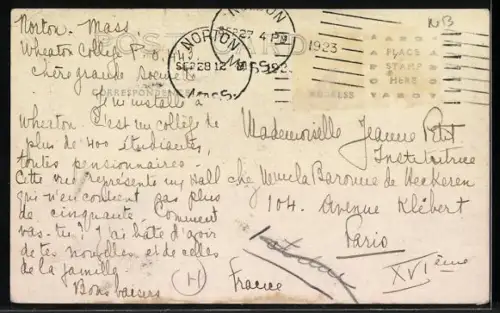 Norton. Mass
Wheaton College P.O.
chère grande
POST CARD
CORRESPONDENCE
Je m'installe à
Wheaton. C'est un collège de
plus de 400 étudiantes,
toutes pensionnaires.
Cette vue représente un Hall
qui n'en contient pas plus
de cinquante. Comment
vas-tu? J'ai hâte d'avoir
de tes nouvelles et de celles
de la famille
Bons baisers
H
NORTON
SEP 27 4 PM
1923
NORTON
SEP 28 12 M
MASS.
PLACE
STAMP
HERE
Mademoiselle Jeanne Petit
Institutrice
chez Mme la Baronne de Heckeren
104. Avenue Klébert
Paris
XVIème
France